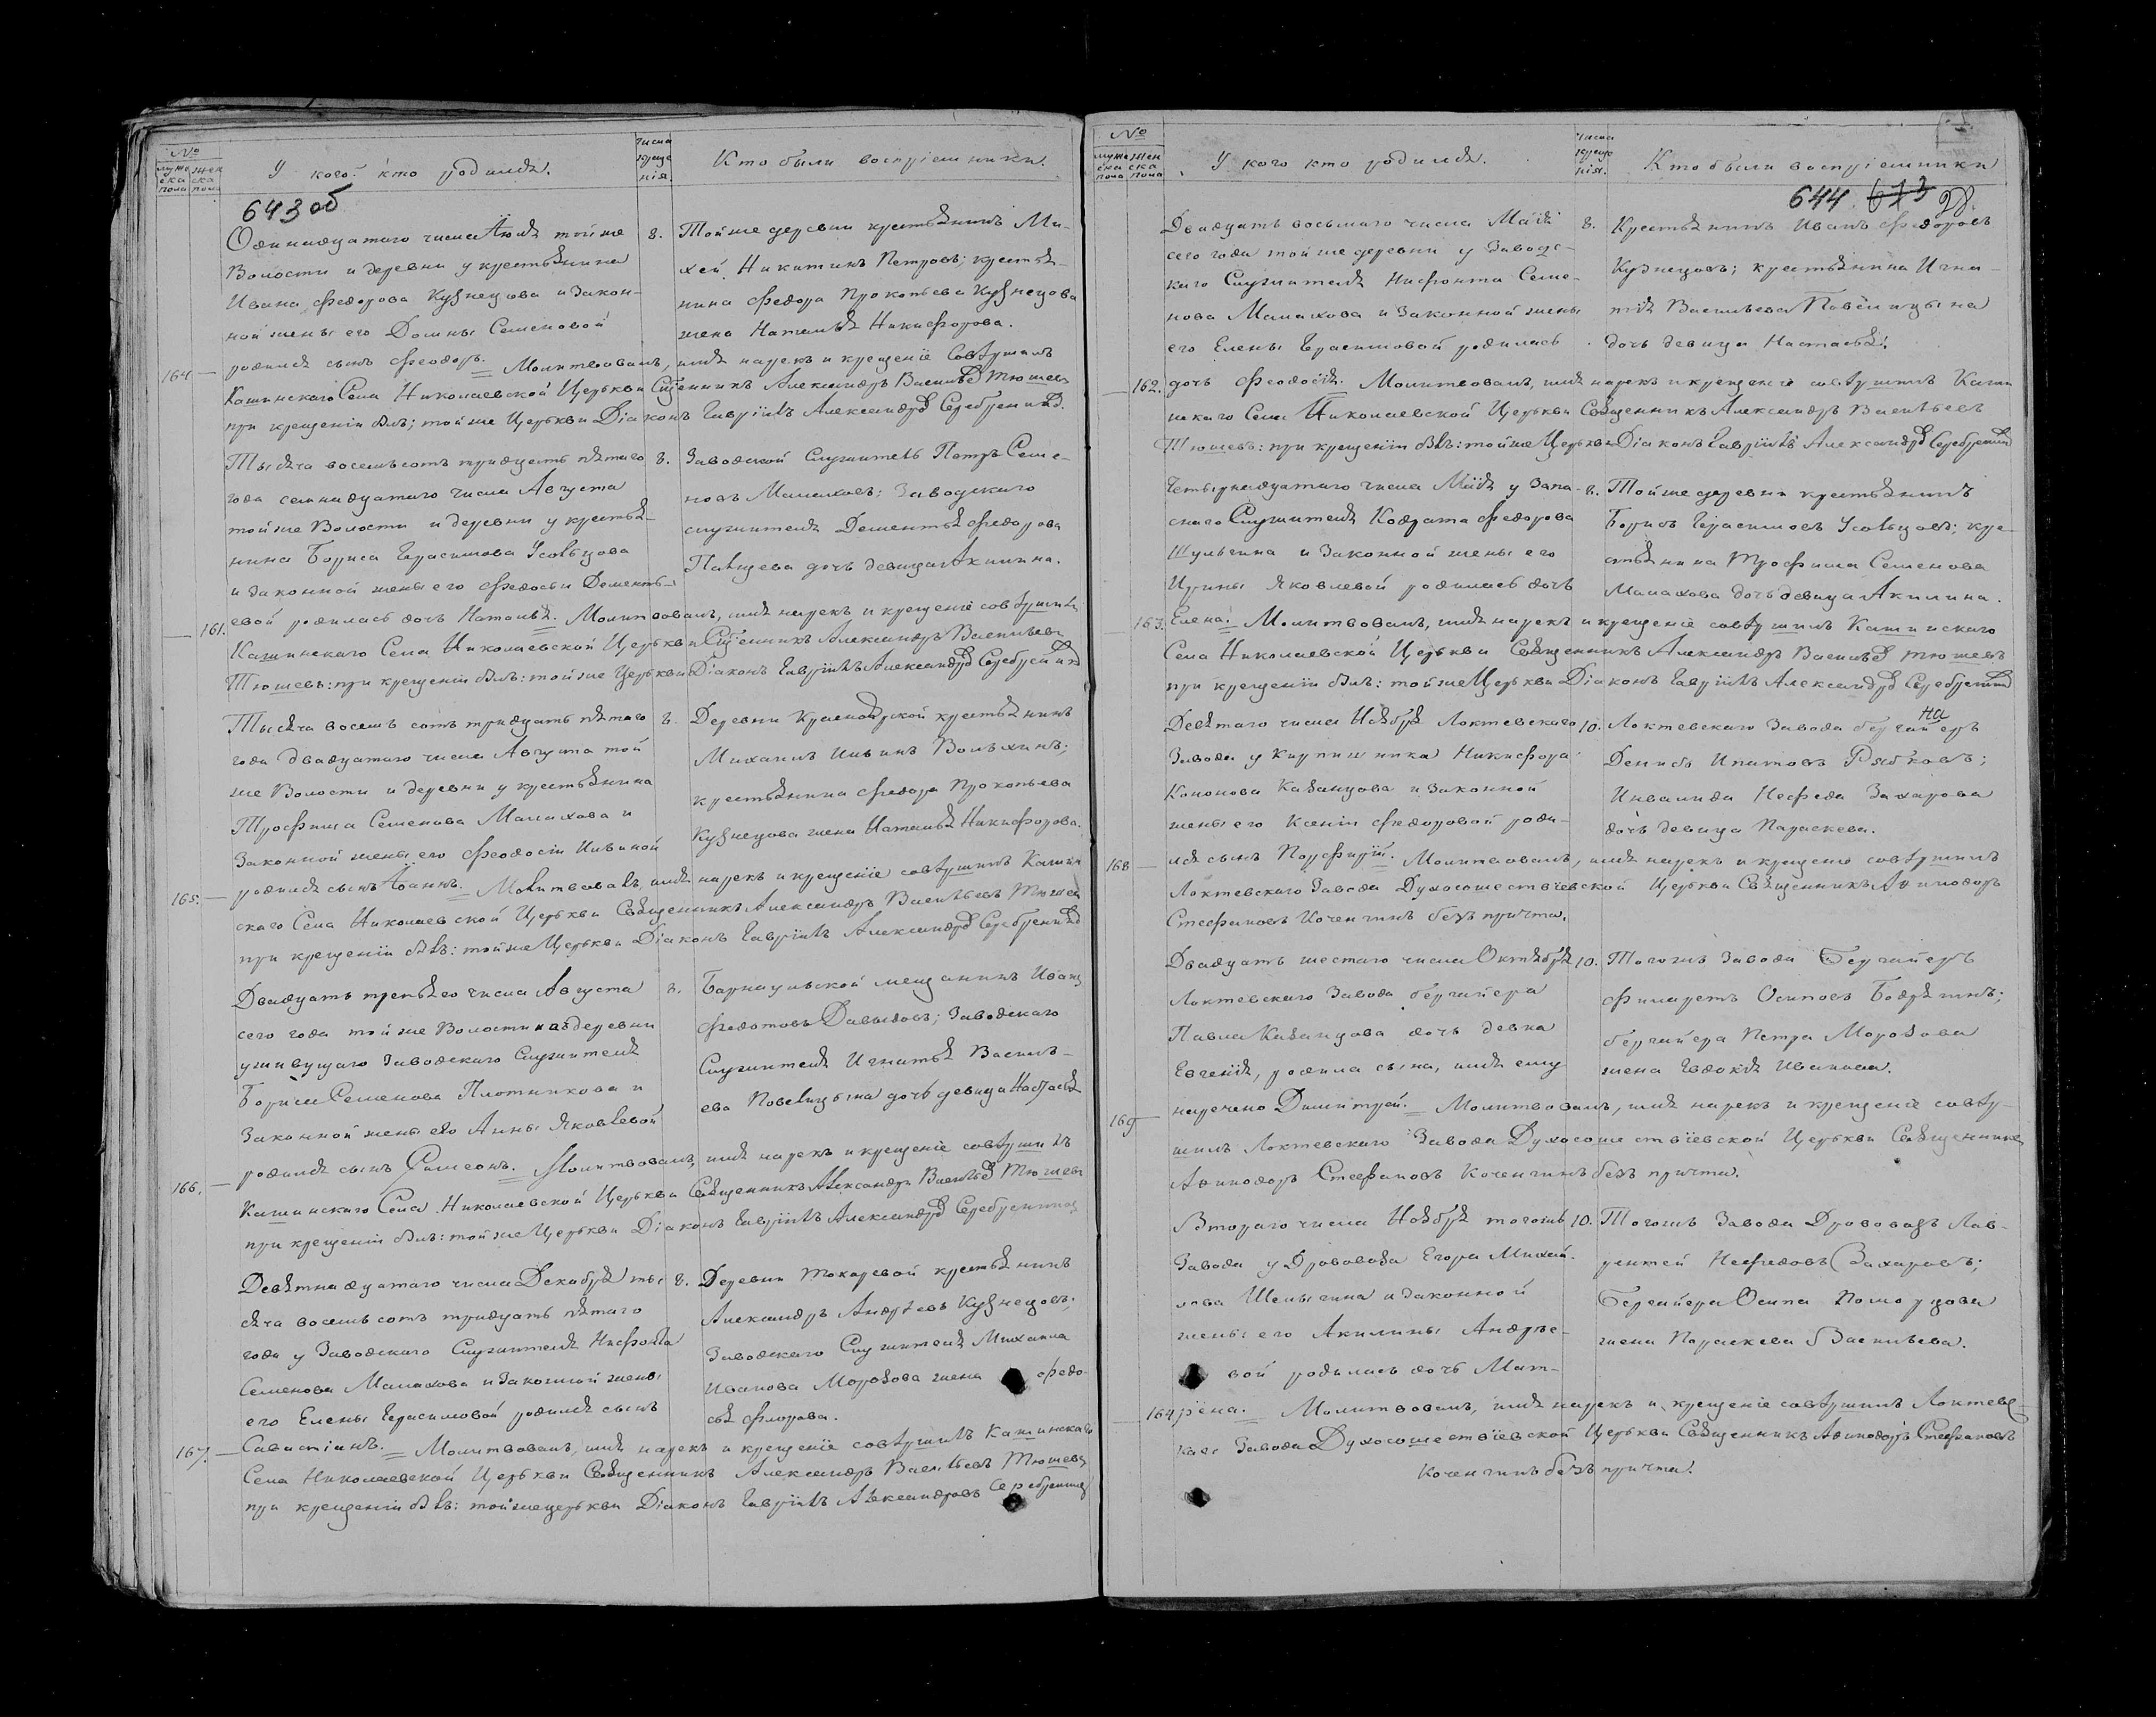 №
мужеска пола
женска пола
У кого кто родился.
числа крещенія.
Кто были воспріемники.
643 об
Одиннадцатаго числа Іюля тойже
Волости и деревни у крестьянина
Ивана Федорова Кузнецова и закон-
ной жены его Домны Семеновой
родился сынъ Феодоръ. Молитвовалъ, имя нарекъ и крещеніе совершилъ
164
Кашинскаго Села Николаевской Церькви Сщенникъ Александръ Васильев Тюшевъ
при крещеніи былъ; тойже Церькви Діаконъ Гавріилъ Александров Серебрениковъ.
8.
Тойже деревни крестьянинъ Ми-
хей Никитинъ Петровъ; крестья-
нина Федора Прокопьева Кузнецова
жена Наталья Никифорова.
Тысяча восемьсотъ тридцать пятаго
года семнадцатаго числа Августа
тойже Волости и деревни у крестья-
нина Бориса Герасимова Усольцова
и законной жены его Федосьи Дементь-
евой родилась дочь Наталья. Молитвовалъ, имя нарекъ и крещеніе совершилъ
161.
Кашинскаго Села Николаевской Церькви Сщенникъ Александръ Васильевъ
Тюшевъ: при крещеніи былъ: тойже Церькви Діаконъ Гавріилъ Александров Серебрениковъ
8.
Заводской Служитель Петръ Семе-
новъ Малаховъ; Заводскаго
служителя Дементья Федорова
дочь девица Акилина.
Тысяча восемь сотъ тридцать пятаго
года двадцатаго числа Августа той
же Волости и деревни у крестьянина
Трофима Семенова Малахова и
Законной жены его Феодосіи Ильиной
родился сынъ Іоаннъ. Молитвовалъ, имя нарекъ и крещеніе совершилъ Кашин
165.
скаго Села Николаевской Церькви Священникъ Александръ Васильевъ Тюшевъ
при крещеніи былъ: тойже Церькви Діаконъ Гавріилъ Александров Серебрениковъ
8.
Деревни Красноярской крестьянинъ
Михаилъ Ильинъ
крестьянина Федора Прокопьева
Кузнецова жена Наталья Никифорова.
Двадцать третьяго числа Августа
сего года тойже Волости и деревни
уживущаго Заводскаго Служителя
Бориса Семенова Плотникова и
Законной жены его Анны Яковлевой
родился сынъ Симеонъ. Молитвовалъ, имя нарекъ и крещеніе совершилъ
166.
Кашинскаго Села Николаевской Церькви Священникъ Александръ Васильев Тюшевъ
при крещеніи былъ: тойже Церькви Діаконъ Гавріилъ Александров Серебрениковъ
8.
Барнаульской мещанинъ Иванъ
Федотовъ Давыдовъ; Заводскаго
Служителя Игнатья Василь-
ева Повелицына дочь девица Настасья
Девятнадцатаго числа Декабря ты
сяча восемьсотъ тридцать пятаго
года у Заводскаго Служителя Нифонта
Семенова Малахова и Законной жены
его Елены Герасимовой родился сынъ
Савастіанъ. Молитвовалъ, имя нарекъ и крещеніе совершилъ Кашинскаго
167.
Села Николаевской Церькви Священникъ Александръ Васильевъ Тюшевъ
при крещеніи былъ: тойже церькви Діаконъ Гавріилъ Александровъ Серебрениковъ
8.
Деревни Токаревой крестьянинъ
Александръ Андреевъ Кузнецовъ;
Заводскаго Служителя Михаила
Иванова Морозова жена Федо-
сья Флорова.
№
мужеска пола
женска пола
У кого кто родился.
числа крещенія.
Кто были воспріемники
644. 673 28.
Двадцать восьмаго числа Маія
сего года тойже деревни у Заводс-
каго Служителя Нифонта Семе-
нова Малахова и Законной жены
его Елены Герасимовой родилась
162.
дочь Феодосія. Молитвовалъ, имя нарекъ и крещеніе совершилъ Каши
нскаго Села Николаевской Церькви Священникъ Александръ Васильевъ
Тюшевъ: при крещеніи былъ: тойже Церькви Діаконъ Гавріилъ Александров Серебрениковъ
8.
Крестьянинъ Иванъ Федоровъ
Кузнецовъ; крестьянина Игна-
тія Васильева Повелицына
дочь девица Настасья.
Четырнадцатаго числа Маія у Заво
скаго Служителя Кодрата Федорова
Шульгина и Законной жены его
Ирины Яковлевой родилась дочь
163.
Елена. Молитвовалъ, имя нарекъ и крещеніе совершилъ Кашинскаго
Села Николаевской Церькви Священникъ Александръ Васильев Тюшевъ
при крещеніи былъ: тойже Церькви Діаконъ Гавріилъ Александров Серебрениковъ
8.
Тойже деревни крестьянинъ
Борисъ Герасимовъ Усольцовъ; кре-
стьянина Трофима Семенова
Малахова дочь девица Акилина.
Девятаго числа Ноября Локтевскаго
Завода у Кирпишника Никифора
Кононова Казанцова и Законной
жены его Ксеніи Федоровой роди-
168
лся сынъ Порфирій. Молитвовалъ, имя нарекъ и крещеніе совершилъ
Локтевскаго Завода Духосошествіевской Церькви Священникъ Аѳиподоръ
Стефановъ Коченгинъ безъ причта.
10.
Локтевскаго Завода бергайеръ
на
Денисъ Ипатовъ Рябковъ;
Инвалида Нефеда Захарова
дочь девица Параскева.
Двадцать шестаго числа Октября
Локтевскаго Завода бергайера
Павла Казанцова дочь девка
Евгенія, родила сына, имя ему
169
наречено Димитрей. Молитвовалъ, имя нарекъ и крещеніе совер-
шилъ Локтевскаго Завода Духосошествіевской Церькви Священникъ
Аѳиподоръ Стефановъ Коченгинъ безъ причта.
10.
Тогожъ Завода Бергайеръ
Филаретъ Осиповъ
бергайера Петра Морозова
жена Евдокія Иванова.
Втораго числа Ноября тогожъ
Завода у Дрововоза Егора Михай
лова и Законной
жены его Акилины Андрее-
вой родилась дочь Мат-
164
рена. Молитвовалъ, имя нарекъ и крещеніе совершилъ Локтевс-
каго Завода Духосошествіевской Церькви Священникъ Аѳиподоръ Стефановъ
Коченгинъ безъ причта.
10.
Тогожъ Завода Дрововозъ Лав-
рентей Нефедовъ Захаровъ;
Бергайера Осипа Поморцова
жена Параскева Васильева.